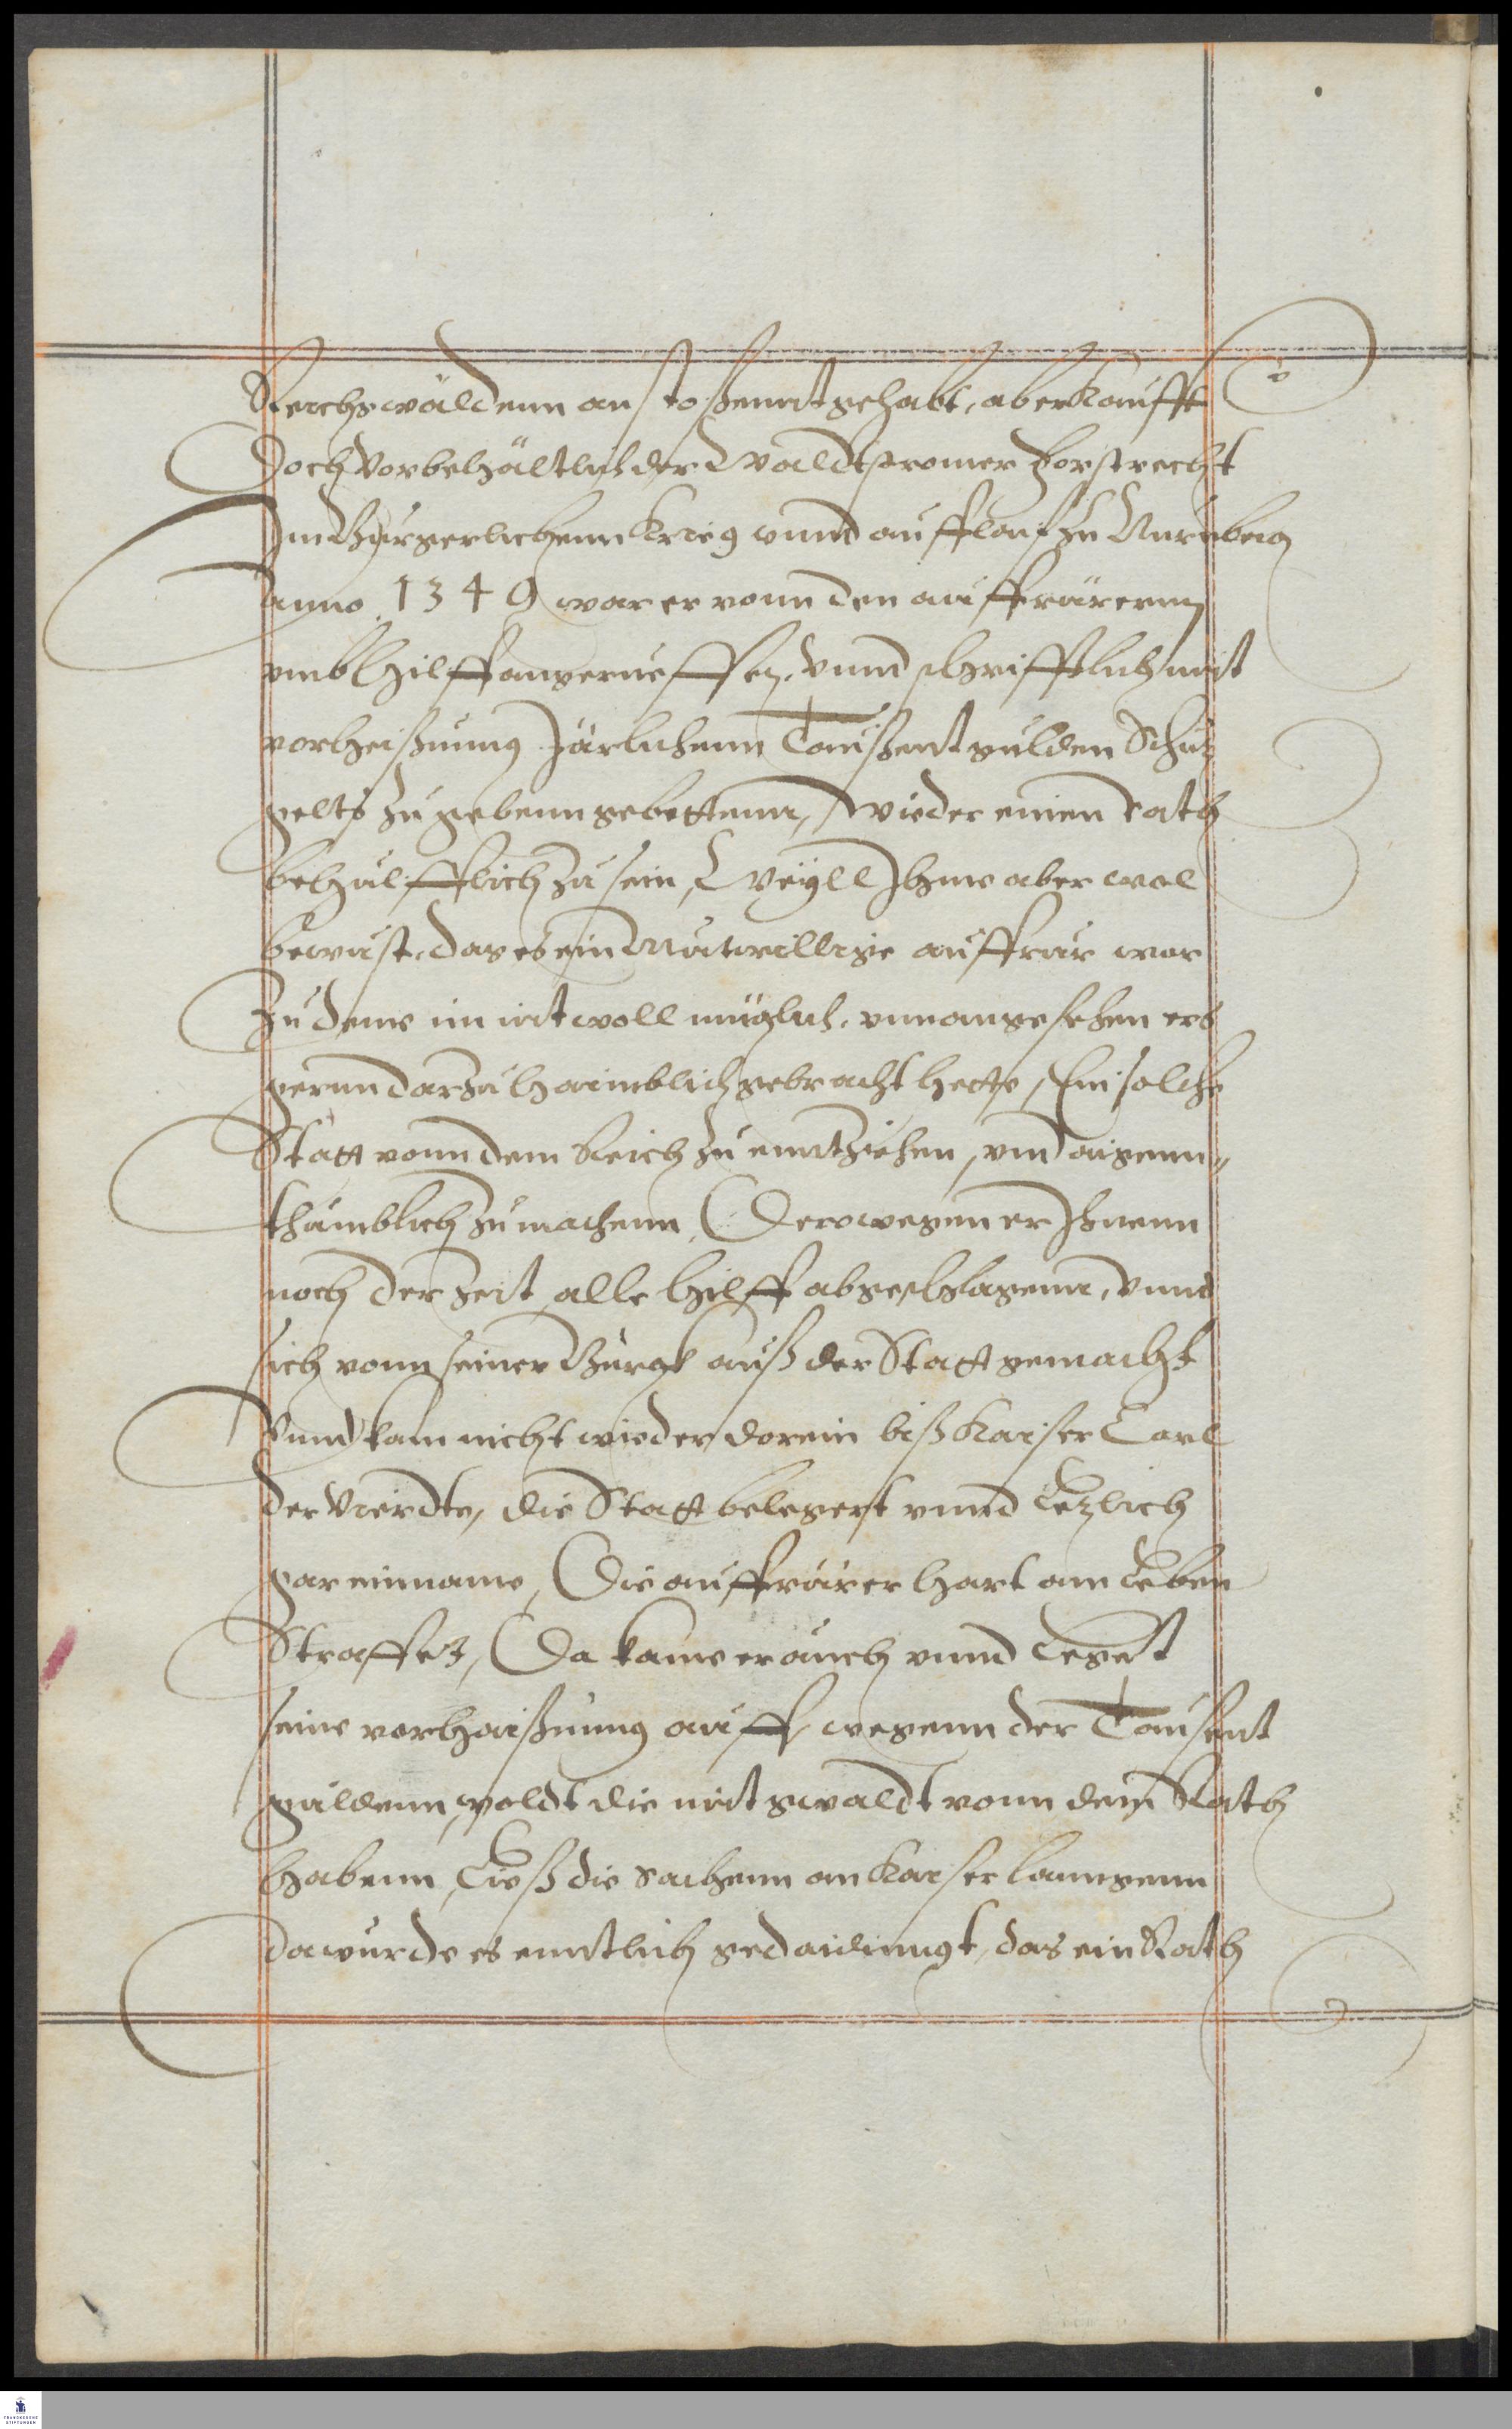 Reichswäldenn anstossennt gehabt, aberkaufft
Doch vorbehältlich der Waldtstromer Forstrecht
Im Burgerlichenn Krieg vnnd aufflauf zu Nurnberg
Anno 1349 war er vonn den auffrürernn
vmb hilff angerueffen, vnnd schrifftlich mit
vorheissung Järlichenn Taussent gulden Schutz
gelts zu gebenn gebettenn, wieder einen rath
behülfflich zu sein, Weyll Ihme aber wol
bewust, das es ein Mutwillige auffrur war
Zu deme im nit woll müglich, vnnangesehen ers
gernn darzu haimblich gebracht hette, Ein solche
Statt vonn dem Reich zu enntziehen, vnd aigenn„
thumblich zu machenn, Derowegen er Ihnenn
noch der zeit alle hilff abgeschlagenn, vnnd
sich vonn seiner Burgk auß der Statt gemacht
Vnnd kam nicht wieder dorein biß Kaiser Carl
der Vierdte, die Statt belegert vnnd Letzlich
gar einname, Die auffrürer hart am Leben
Straffet, Da kame er auch vnnd Legett
seine vorhaissung auff, wegenn der Tausent
guldenn, woldt die mit gwaldt vonn dem Rath
habenn, Ließ die sachenn an Kaiser lanngenn
da wurde es enntlich gedaidinngt, das ein Rath
FRANCKESCHE
STIFTUNGEN